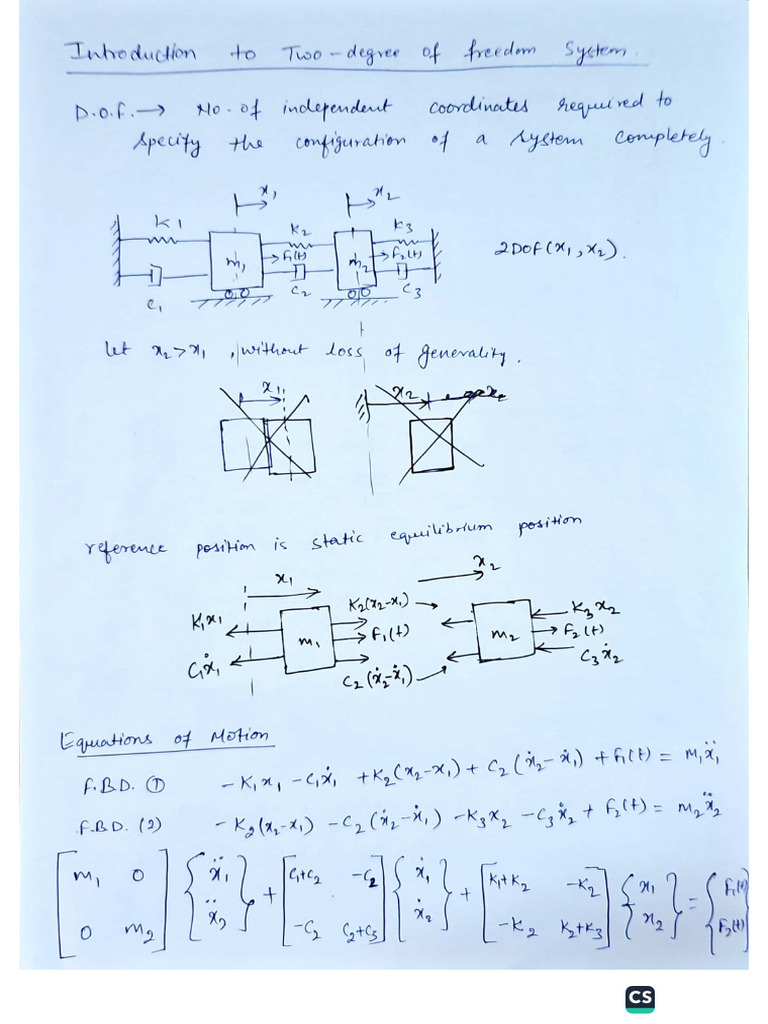 Introduction to Two-degree of freedom System.
D.O.F. → No. of independent coordinates required to
specify the configuration of a system completely.
x₁ x₂
K1 K₂ K₃
m₁ F₁(t) m₂ F₂(t)
C₁ C₂ C₃
2DOF(x₁, x₂).
let x₂>x₁, without loss of generality.
x₁ x₂
reference position is static equilibrium position
x₁ x₂
K₁x₁ K₂(x₂-x₁) K₃x₂
m₁ F₁(t) m₂ F₂(t)
C₁ẋ₁ C₂(ẋ₂-ẋ₁) C₃ẋ₂
Equations of Motion
F.B.D. ① -K₁x₁ -C₁ẋ₁ +K₂(x₂-x₁) + C₂(ẋ₂-ẋ₁) + F₁(t) = M₁ẍ₁
F.B.D. (2) -K₂(x₂-x₁) -C₂(ẋ₂-ẋ₁) -K₃x₂ -C₃ẋ₂ + F₂(t) = M₂ẍ₂
[m₁ 0] {ẍ₁} + [C₁+C₂ -C₂] {ẋ₁} + [K₁+K₂ -K₂] {x₁} = {F₁(t)}
[0 m₂] {ẍ₂} [-C₂ C₂+C₃] {ẋ₂} [-K₂ K₂+K₃] {x₂} {F₂(t)}
CS